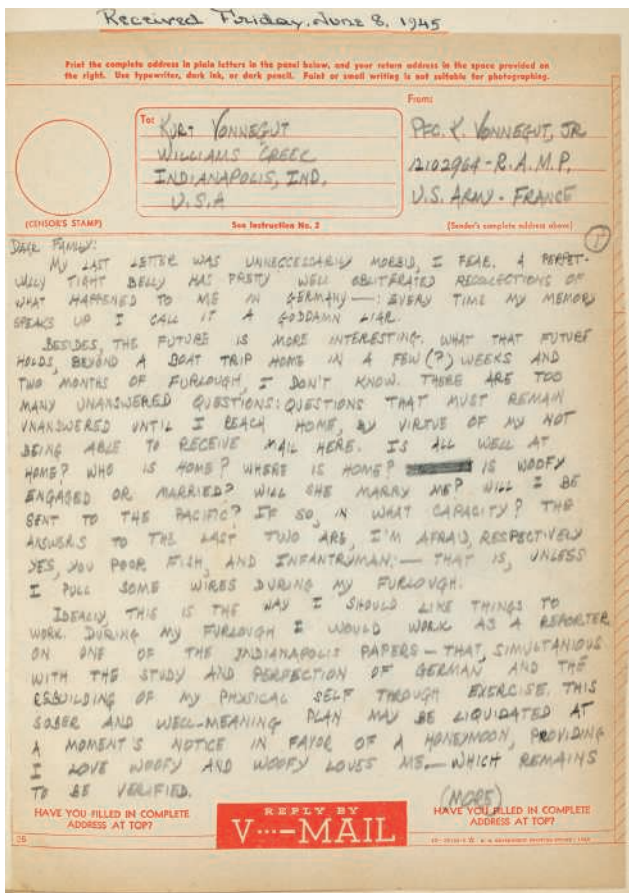 Received Friday, June 8, 1945
Print the complete address in plain letters in the panel below, and your return address in the space provided on
the right. Use typewriter, dark ink, or dark pencil. Faint or small writing is not suitable for photographing.
To:
KURT VONNEGUT
WILLIAMS CREEK
INDIANAPOLIS, IND.
U.S.A
From:
PFC. K. VONNEGUT, JR
12102964 - R.A.M.P.
U.S. ARMY - FRANCE
(CENSOR'S STAMP)
See Instruction No. 2
(Sender's complete address above)
1
DEAR FAMILY:
MY LAST LETTER WAS UNNECCESSARILY MORBID, I FEAR. A PERPET-
UALLY TIGHT BELLY HAS PRETY WELL OBLITERATED RECOLLECTIONS OF
WHAT HAPPENED TO ME IN GERMANY—: EVERY TIME MY MEMORY
SPEAKS UP I CALL IT A GODDAMN LIAR.
BESIDES, THE FUTURE IS MORE INTERESTING. WHAT THAT FUTURE
HOLDS, BEYOND A BOAT TRIP HOME IN A FEW (?) WEEKS AND
TWO MONTHS OF FURLOUGH, I DON'T KNOW. THERE ARE TOO
MANY UNANSWERED QUESTIONS: QUESTIONS THAT MUST REMAIN
UNANSWERED UNTIL I REACH HOME, BY VIRTUE OF MY NOT
BEING ABLE TO RECEIVE MAIL HERE. IS ALL WELL AT
HOME? WHO IS HOME? WHERE IS HOME? IS WOOFY
ENGAGED OR MARRIED? WILL SHE MARRY ME? WILL I BE
SENT TO THE PACIFIC? IF SO, IN WHAT CAPACITY? THE
ANSWERS TO THE LAST TWO ARE, I'M AFRAID, RESPECTIVELY
YES, YOU POOR FISH, AND INFANTRYMAN.— THAT IS, UNLESS
I PULL SOME WIRES DURING MY FURLOUGH.
IDEALLY, THIS IS THE WAY I SHOULD LIKE THINGS TO
WORK. DURING MY FURLOUGH I WOULD WORK AS A REPORTER
ON ONE OF THE INDIANAPOLIS PAPERS — THAT, SIMULTANIOUS
WITH THE STUDY AND PERFECTION OF GERMAN AND THE
REBUILDING OF MY PHYSICAL SELF THROUGH EXERCISE. THIS
SOBER AND WELL-MEANING PLAN MAY BE LIQUIDATED AT
A MOMENT'S NOTICE IN FAVOR OF A HONEYMOON, PROVIDING
I LOVE WOOFY AND WOOFY LOVES ME.— WHICH REMAINS
TO BE VERIFIED.
(MORE)
HAVE YOU FILLED IN COMPLETE
ADDRESS AT TOP?
REPLY BY
V···—MAIL
HAVE YOU FILLED IN COMPLETE
ADDRESS AT TOP?